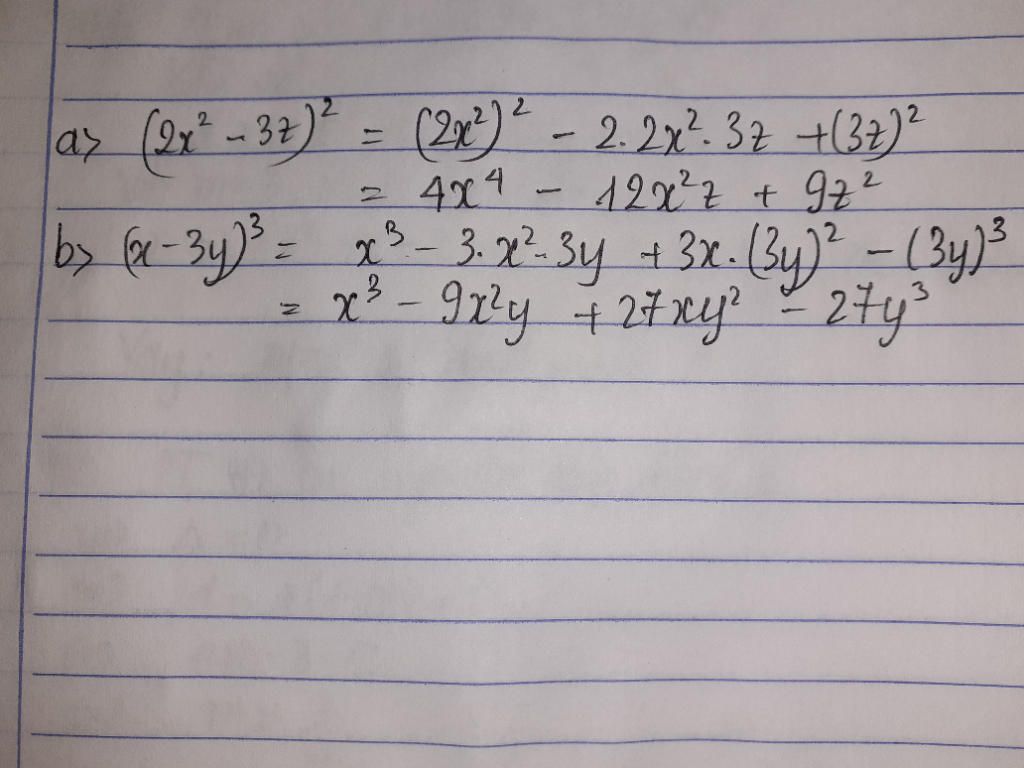 a> (2x² - 3z)² = (2x²)² - 2.2x².3z + (3z)²
= 4x⁴ - 12x²z + 9z²
b> (x - 3y)³ = x³ - 3.x².3y + 3x.(3y)² - (3y)³
= x³ - 9x²y + 27xy² - 27y³